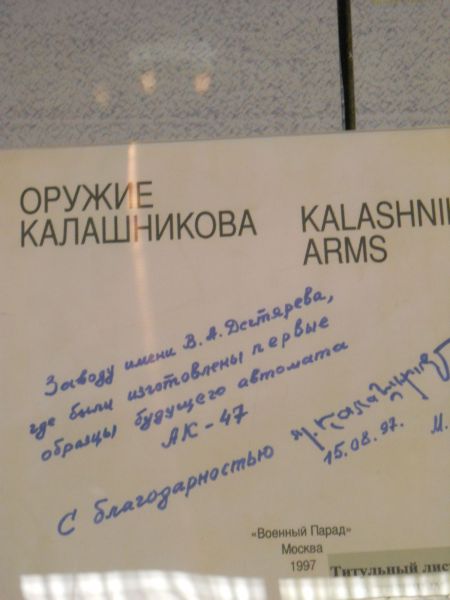 ОРУЖИЕ
КАЛАШНИКОВА
KALASHNI
ARMS
Заводу имени В.А. Дегтярева,
где были изготовлены первые
образцы будущего автомата
АК-47
С благодарностью М. Калашников
15.08.97. М.
«Военный Парад»
Москва
1997
Титульный лис